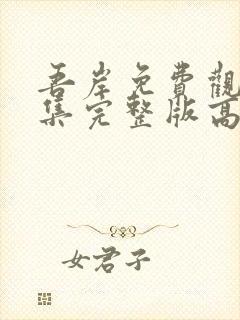 吾岸免費觀
集完整版高
女君子